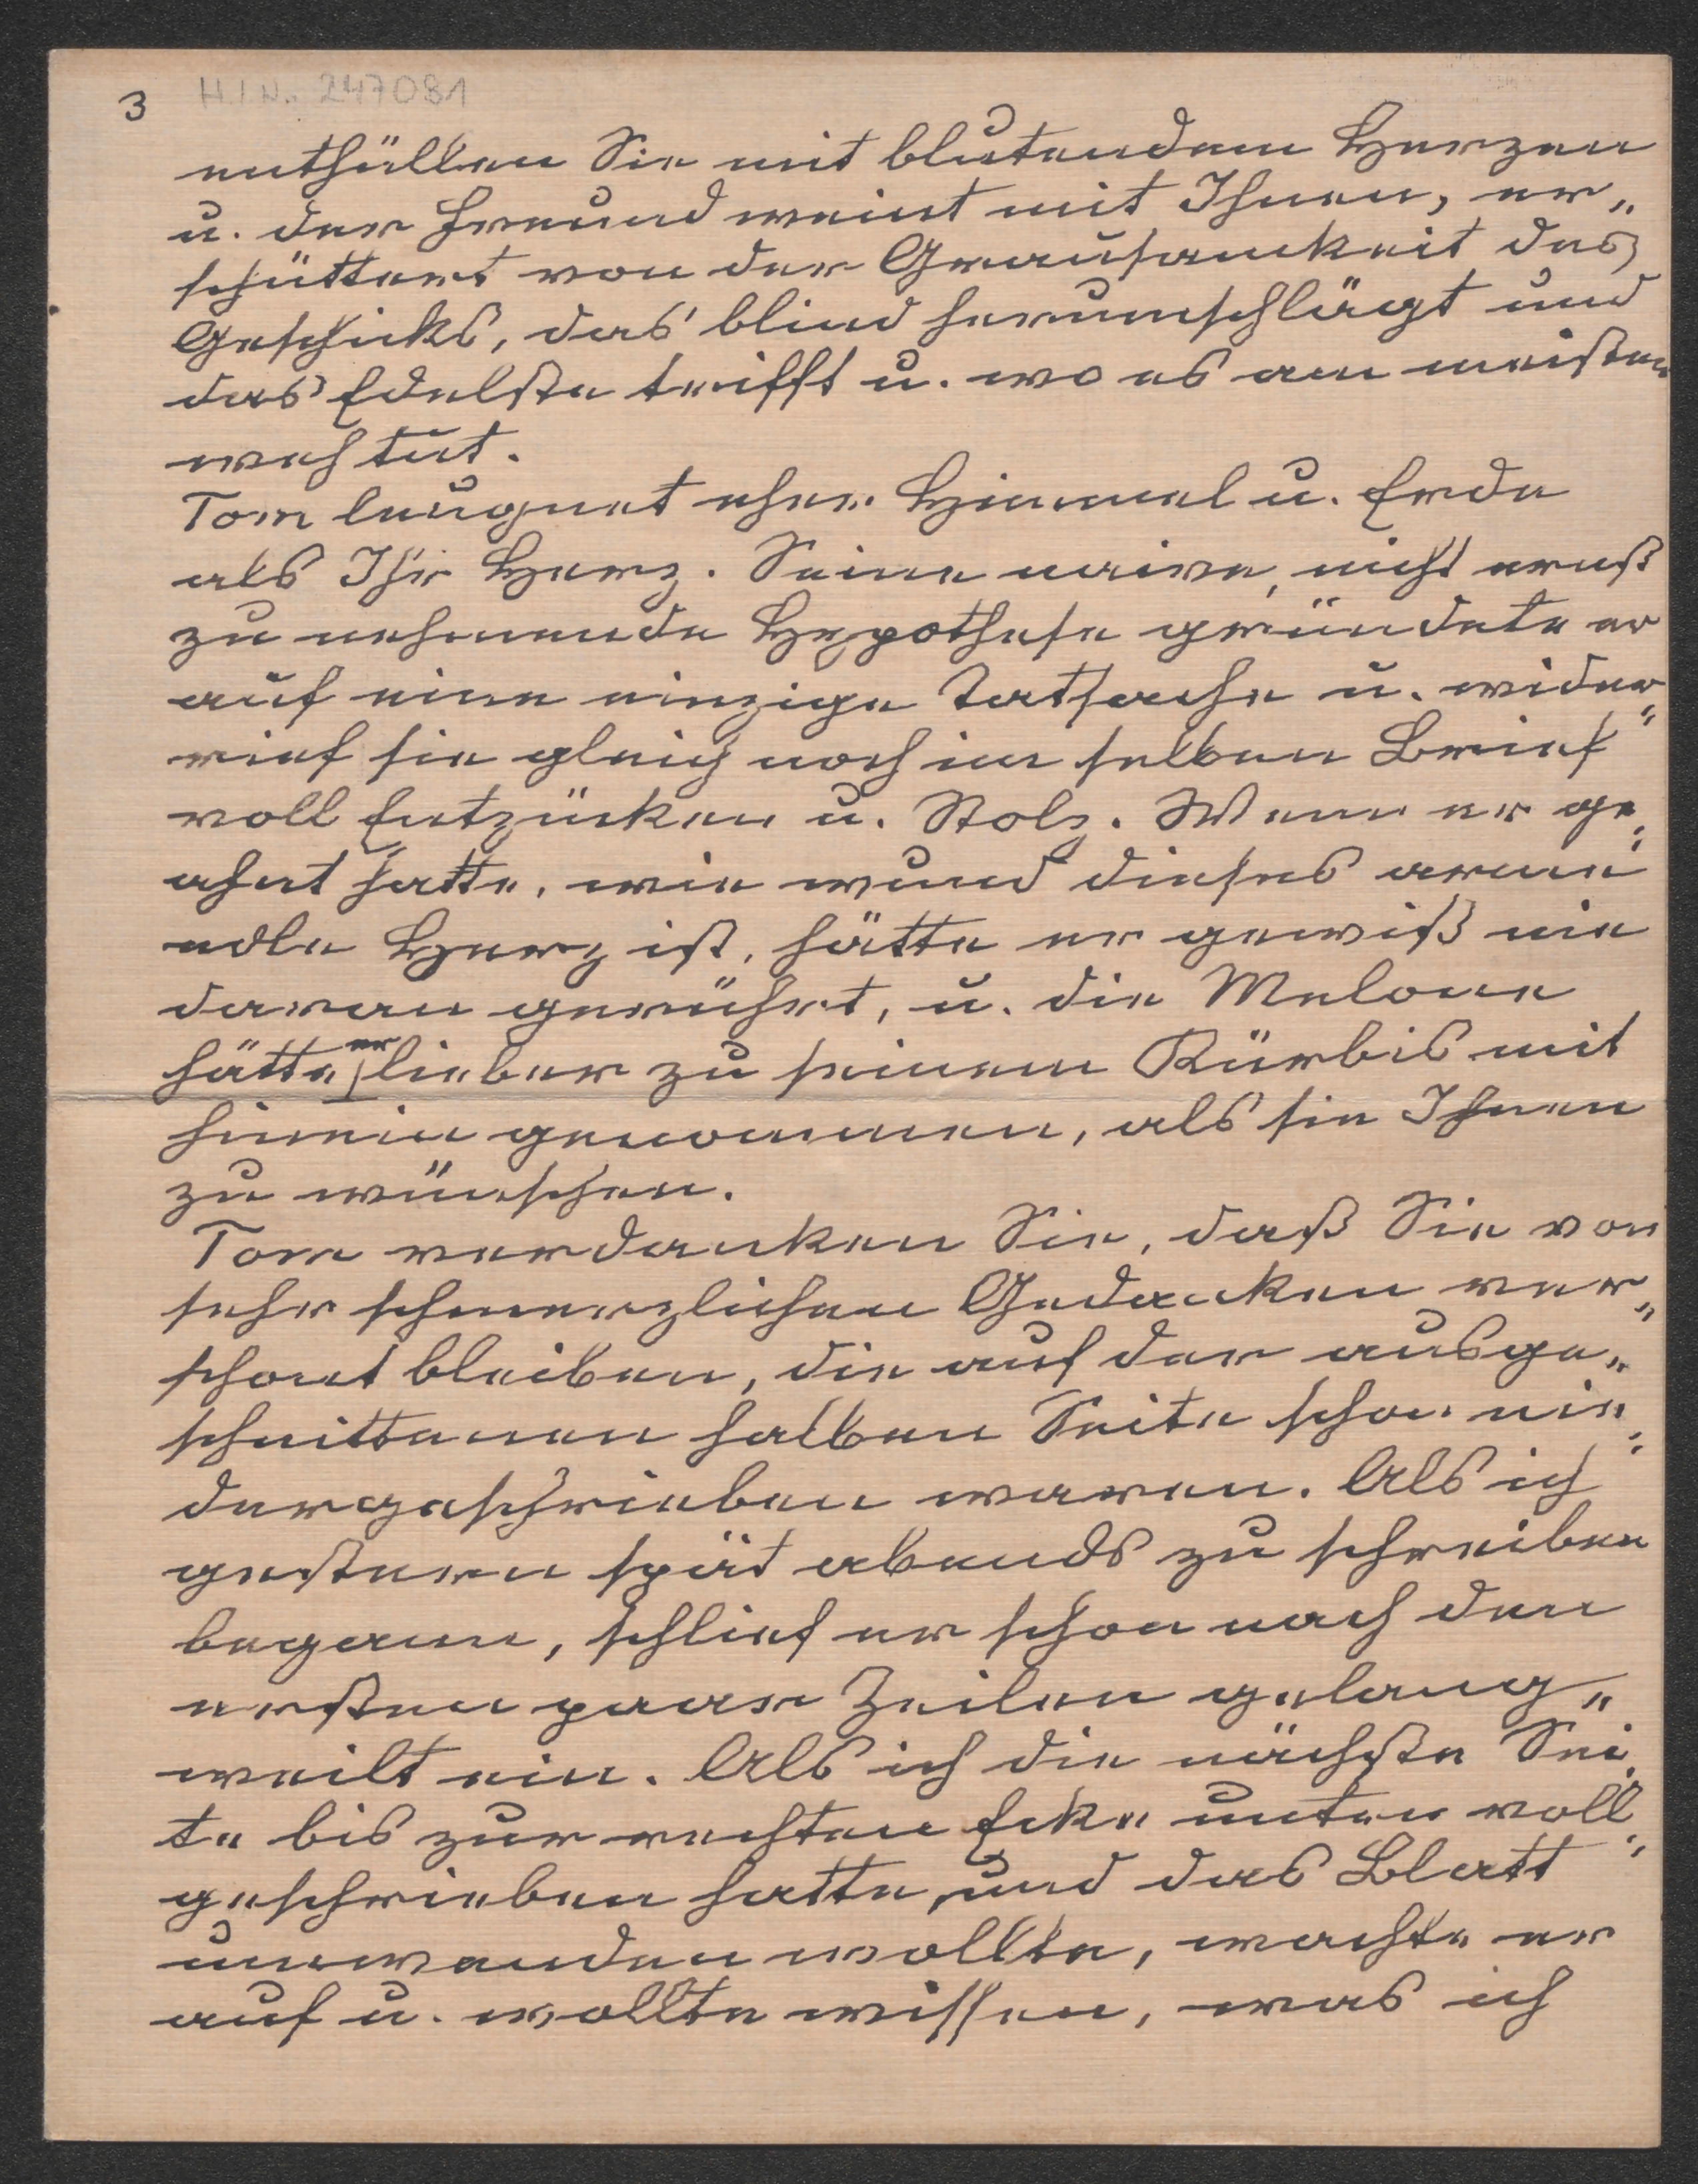 3 H.I.N. 247081
enthüllen Sie mit blutendem Herzen
u. der Freund weint mit Ihnen, er„
schüttert von der Grausamkeit des
Geschicks, das blind herumschlägt und
das Edelste trifft u. wo es am meisten
weh tut.
Tom leugnet eher Himmel u. Erde
als Ihr Herz. Seine naive, nicht ernst
zu nehmende Hypothese gründete er
auf eine einzige Tatsache u. wider„
rief sie gleich noch im selben Brief
voll Entzücken u. Stolz. Wenn er ge„
ahnt hätte, wie wund dieses arme
edle Herz ist, hätte er gewiß nie
daran gerührt, u. die Melone
hätte er lieber zu seinem Kürbis mit
hinein genommen, als sie Ihnen
zu wünschen.
Tom verdanken Sie, daß Sie von
sehr schmerzlichen Gedanken ver„
schont bleiben, die auf der ausge„
schnittenen halben Seite schon nie„
dergeschrieben waren. Als ich
gestern spät abends zu schreiben
begann, schlief er schon nach den
ersten paar Zeilen gelang„
weilt ein. Als ich die nächste Sei„
te bis zur rechten Ecke unten voll„
geschrieben hatte, und das Blatt
umwenden wollte, wachte er
auf u. wollte wissen, was ich